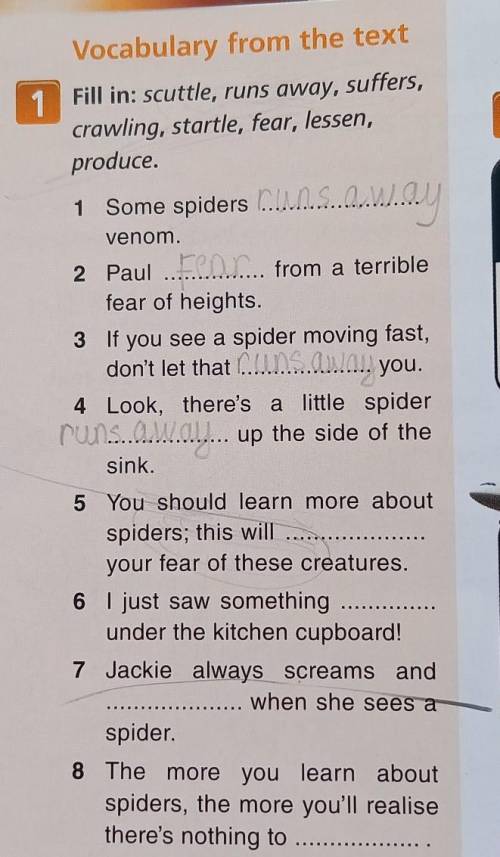 Vocabulary from the text
1 Fill in: scuttle, runs away, suffers,
crawling, startle, fear, lessen,
produce.
1 Some spiders runs away
venom.
2 Paul fear from a terrible
fear of heights.
3 If you see a spider moving fast,
don't let that runs away you.
4 Look, there's a little spider
runs away up the side of the
sink.
5 You should learn more about
spiders; this will ....................
your fear of these creatures.
6 I just saw something ..............
under the kitchen cupboard!
7 Jackie always screams and
.................... when she sees a
spider.
8 The more you learn about
spiders, the more you'll realise
there's nothing to .................. .